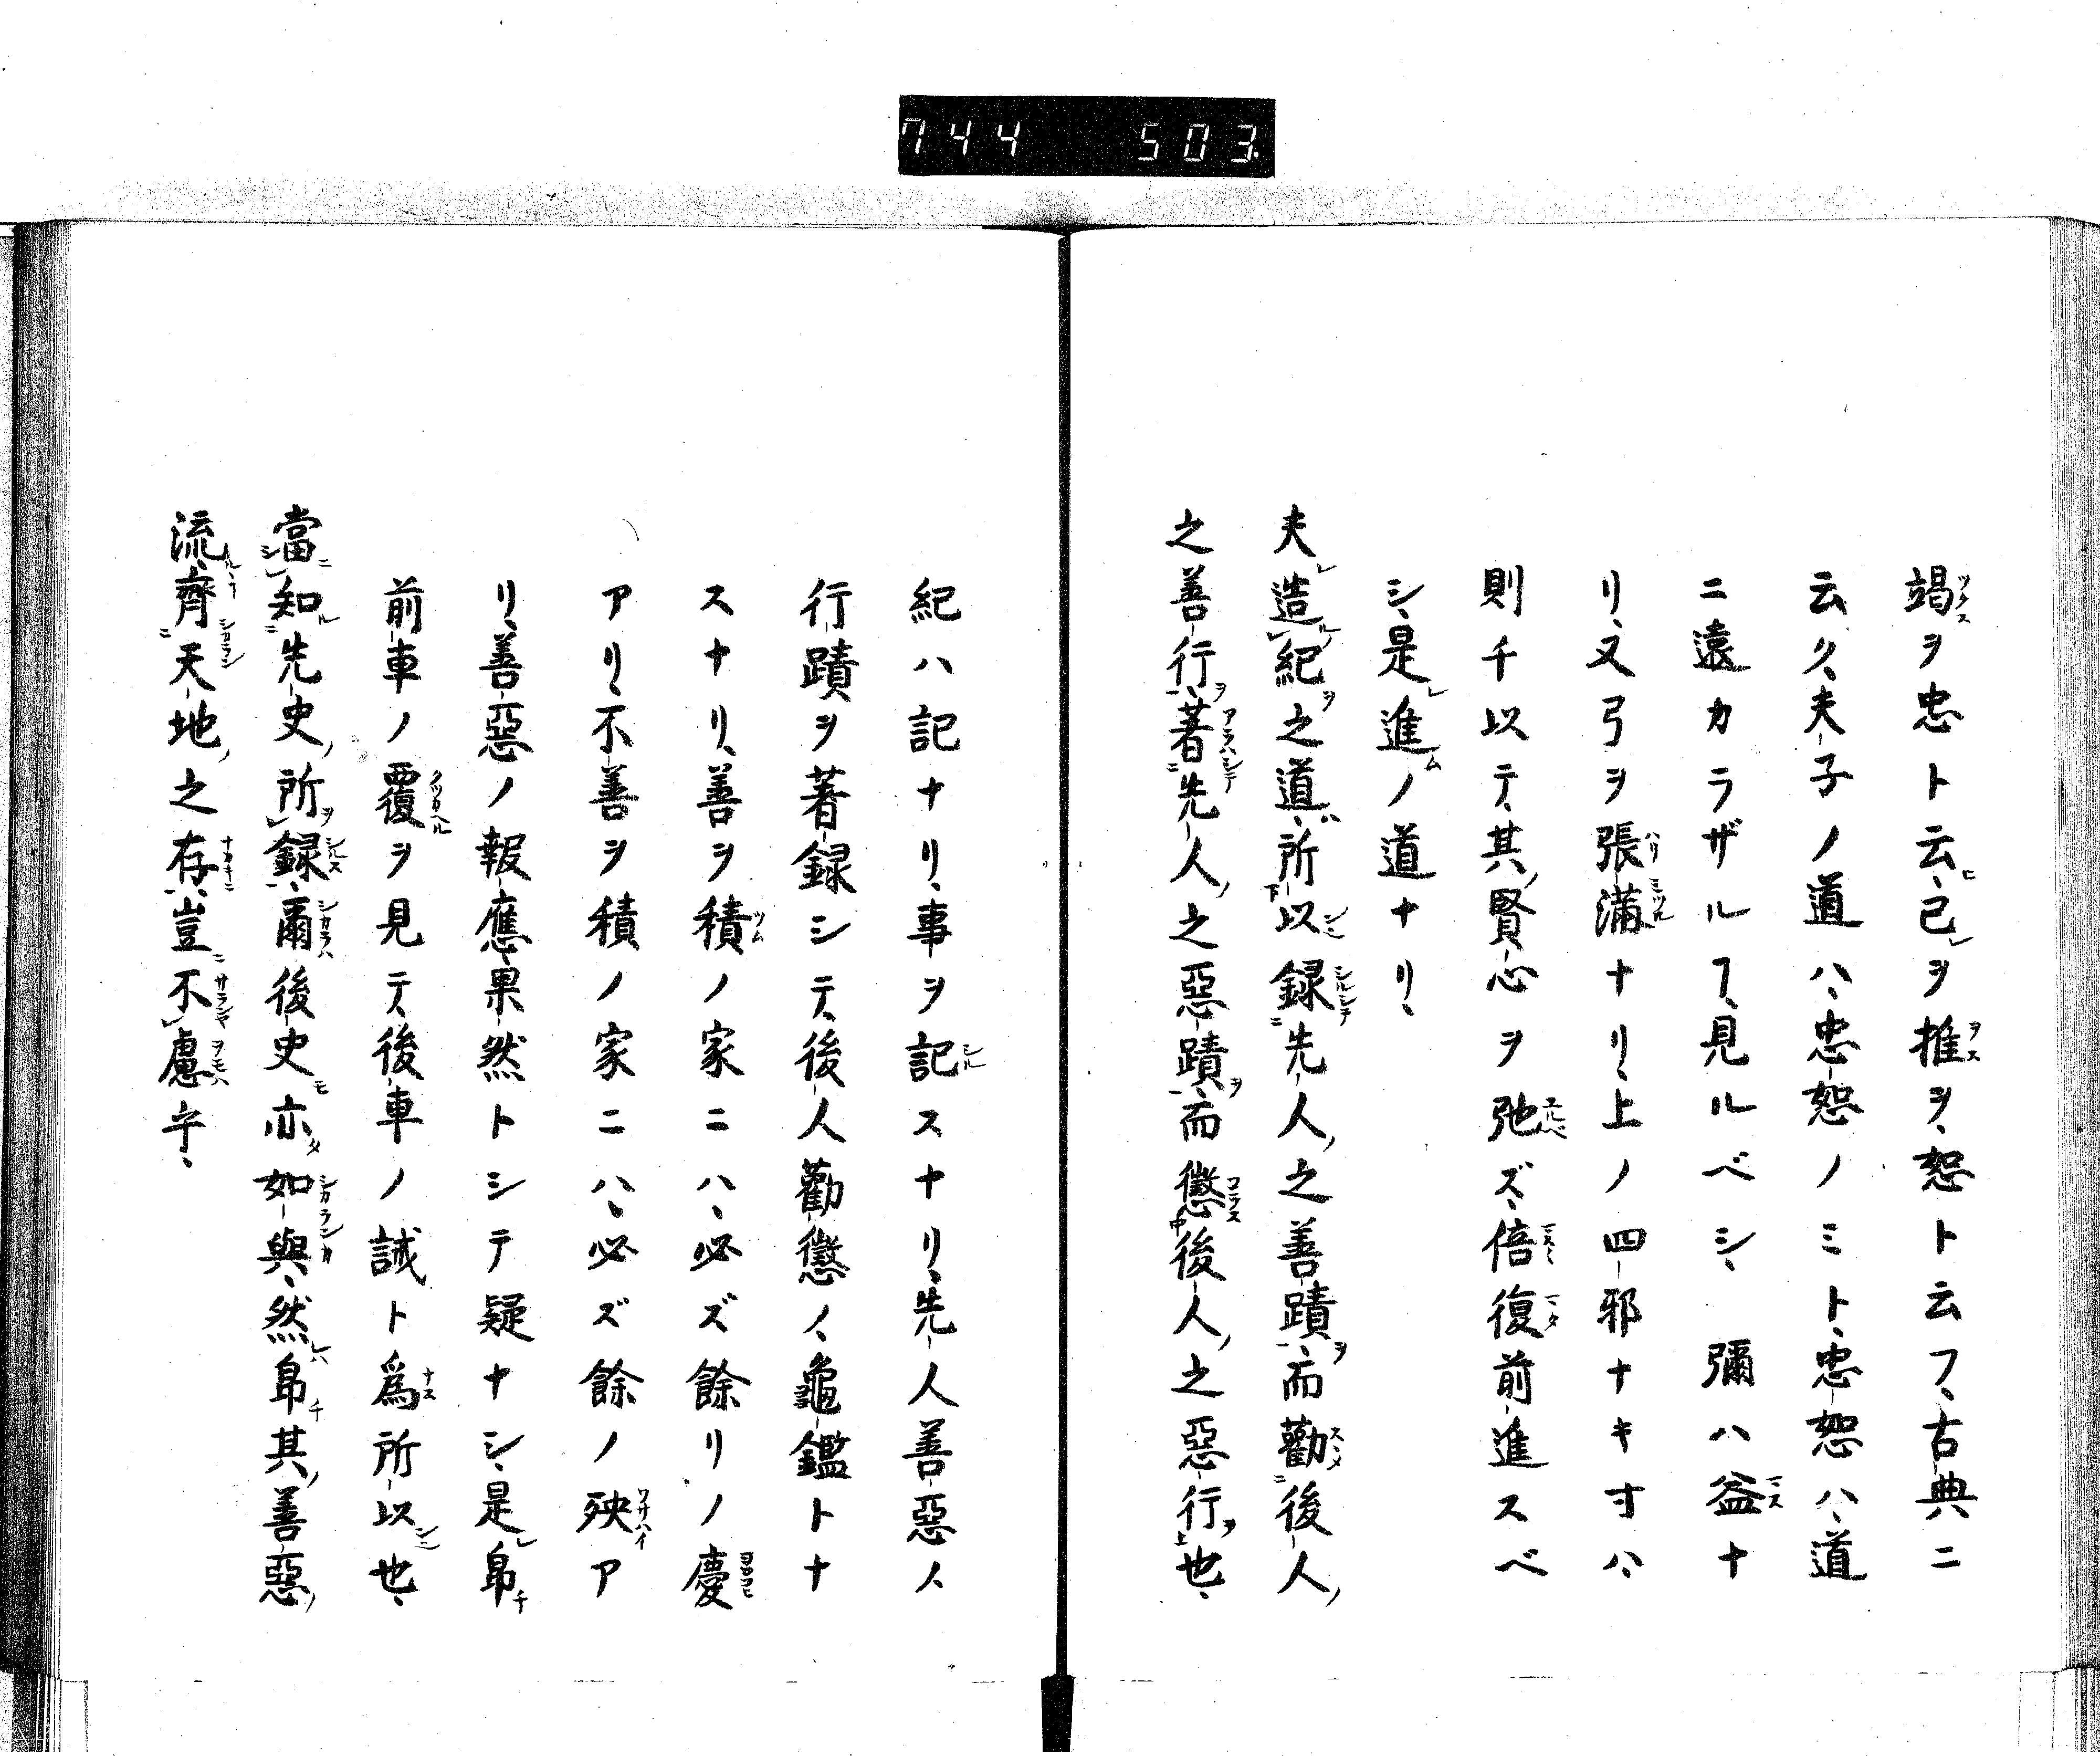 744 503
竭ヲ忠ト云、己ヲ推ヲ、恕ト云フ、古典ニ
云ク、夫子ノ道ハ、忠恕ノミト、忠恕ハ、道
ニ遠カラザルヿ、見ルベシ、彌ハ益ナ
リ、又弓ヲ張滿ナリ、上ノ四邪ナキ寸ハ、
則チ以テ、其賢心ヲ弛ズ、倍復前進スベ
シ、是進ノ道ナリ、
夫造紀之道、所以録先人之善蹟、而勸後人
之善行、著先人之惡蹟、而懲後人之惡行也、
紀ハ記ナリ、事ヲ記スナリ、先人善惡ノ
行蹟ヲ著録シテ、後人勸懲ノ、龜鑑トナ
スナリ、善ヲ積ノ家ニハ、必ズ餘リノ慶
アリ、不善ヲ積ノ家ニハ、必ズ餘ノ殃ア
リ、善惡ノ報應、果然トシテ疑ナシ、是帠
前車ノ覆ヲ見テ、後車ノ誡ト爲所以也、
當知先史所録、爾後史亦如與、然帠其善惡
流、齊天地之存、豈不慮乎、